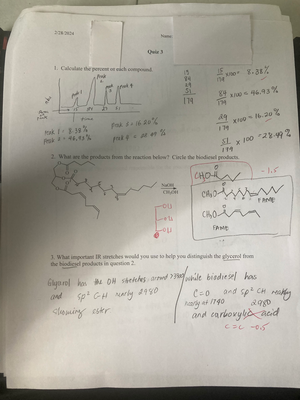 2/28/2024
Name
Quiz 3
1. Calculate the percent of each compound.
15
84
29
51
179
15/179 x100= 8.38%
84/179 x100 = 46.93%
29/179 x 100 = 16.20%
51/179 x 100 = 28.49%
peak 1
peak 2
peak 3
peak 4
peak 1 = 8.38%
peak 2 = 46.93%
peak 3 = 16.20%
peak 4 = 28.49%
2. What are the products from the reaction below? Circle the biodiesel products.
-1.5
NaOH
CH3OH
CH3O
CH3O
CH3O
FAME
FAME
3. What important IR stretches would you use to help you distinguish the glycerol from
the biodiesel products in question 2.
Glycerol has the OH stretches around >3300
and sp3 C-H nearly 2980
showing ester.
while biodiesel has
C=O and sp3 CH nearby
nearly at 1740 2980
and carboxylic acid
C=C -0.5